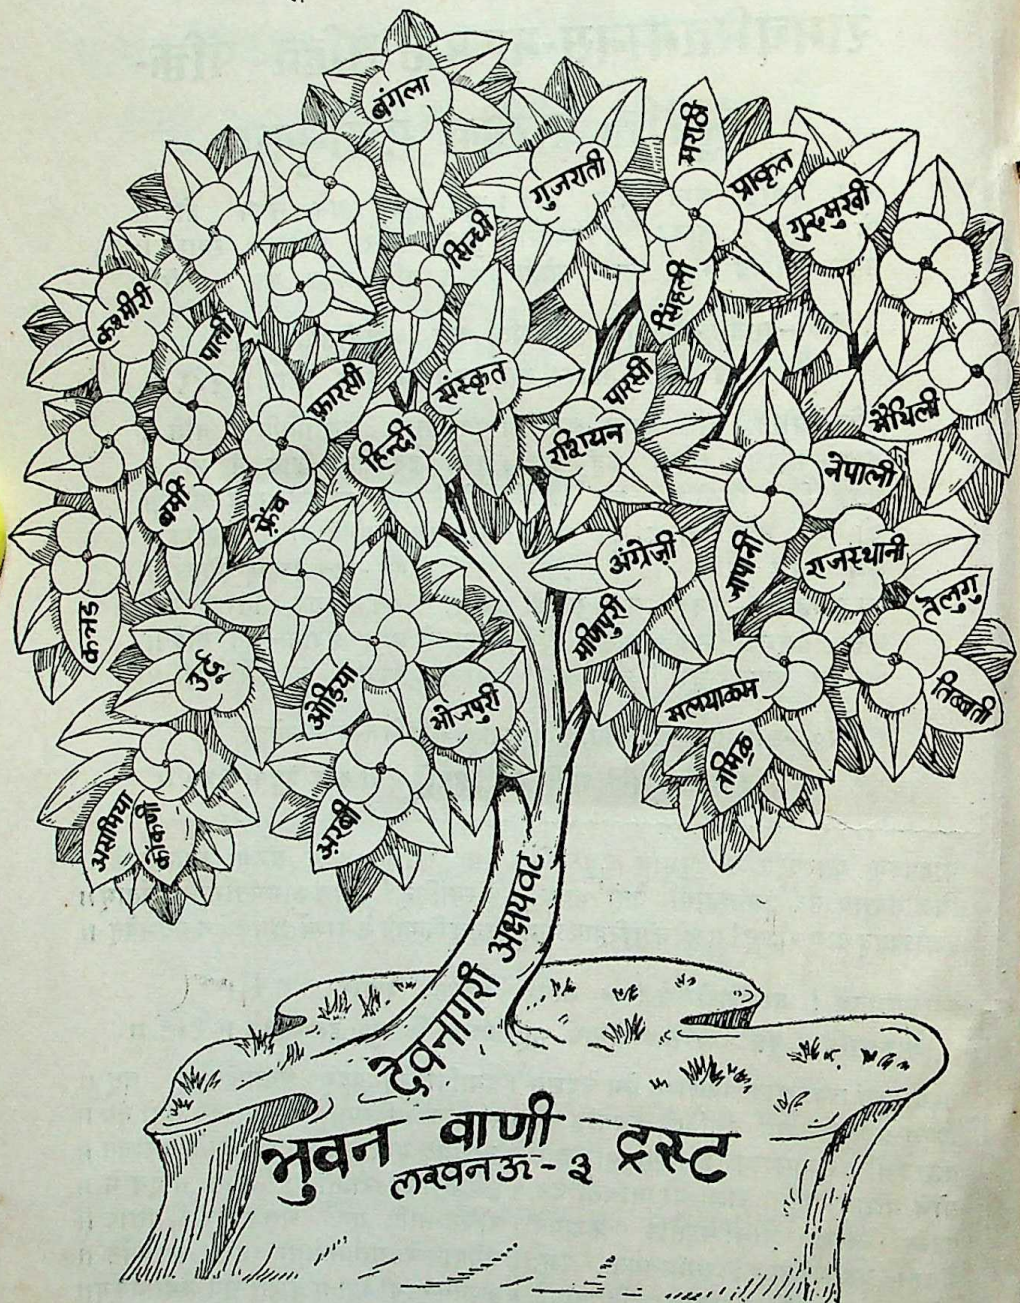 बंगला
मराठी
गुजराती
प्राकृत
गुरुमुखी
सिन्धी
सिंहली
कश्मीरी
पाली
फ़ारसी
संस्कृत
पारसी
मैथिली
हिन्दी
रशियन
नेपाली
बर्मी
फ़्रेंच
अंग्रेज़ी
जापानी
राजस्थानी
तेलुगु
कन्नड
मणिपुरी
उर्दू
ओड़िया
भोजपुरी
मलयाळम
तिब्बती
तमिऴ
असमिया
कोंकणी
अ़रबी
देवनागरी अक्षयवट
भुवन वाणी ट्रस्ट
लखनऊ-३